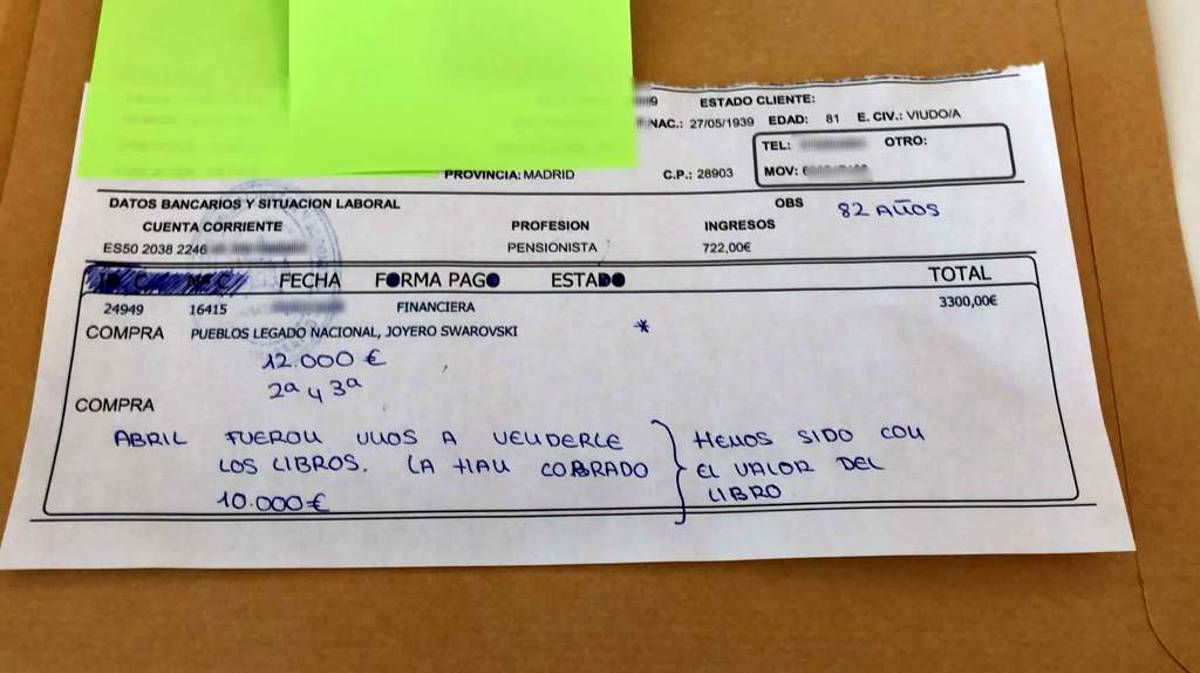 ESTADO CLIENTE:
NAC.: 27/05/1939 EDAD: 81 E. CIV.: VIUDO/A
TEL: OTRO:
PROVINCIA: MADRID C.P.: 28903 MOV:
DATOS BANCARIOS Y SITUACION LABORAL OBS 82 AÑOS
CUENTA CORRIENTE PROFESION INGRESOS
ES50 2038 2246 PENSIONISTA 722,00€
FECHA FORMA PAGO ESTADO TOTAL
24949 16415 FINANCIERA 3300,00€
COMPRA PUEBLOS LEGADO NACIONAL, JOYERO SWAROVSKI *
12.000 €
2ª y 3ª
COMPRA
ABRIL FUERON UNOS A VENDERLE
LOS LIBROS. LA HAN COBRADO
10.000€
HEMOS SIDO CON
EL VALOR DEL
LIBRO